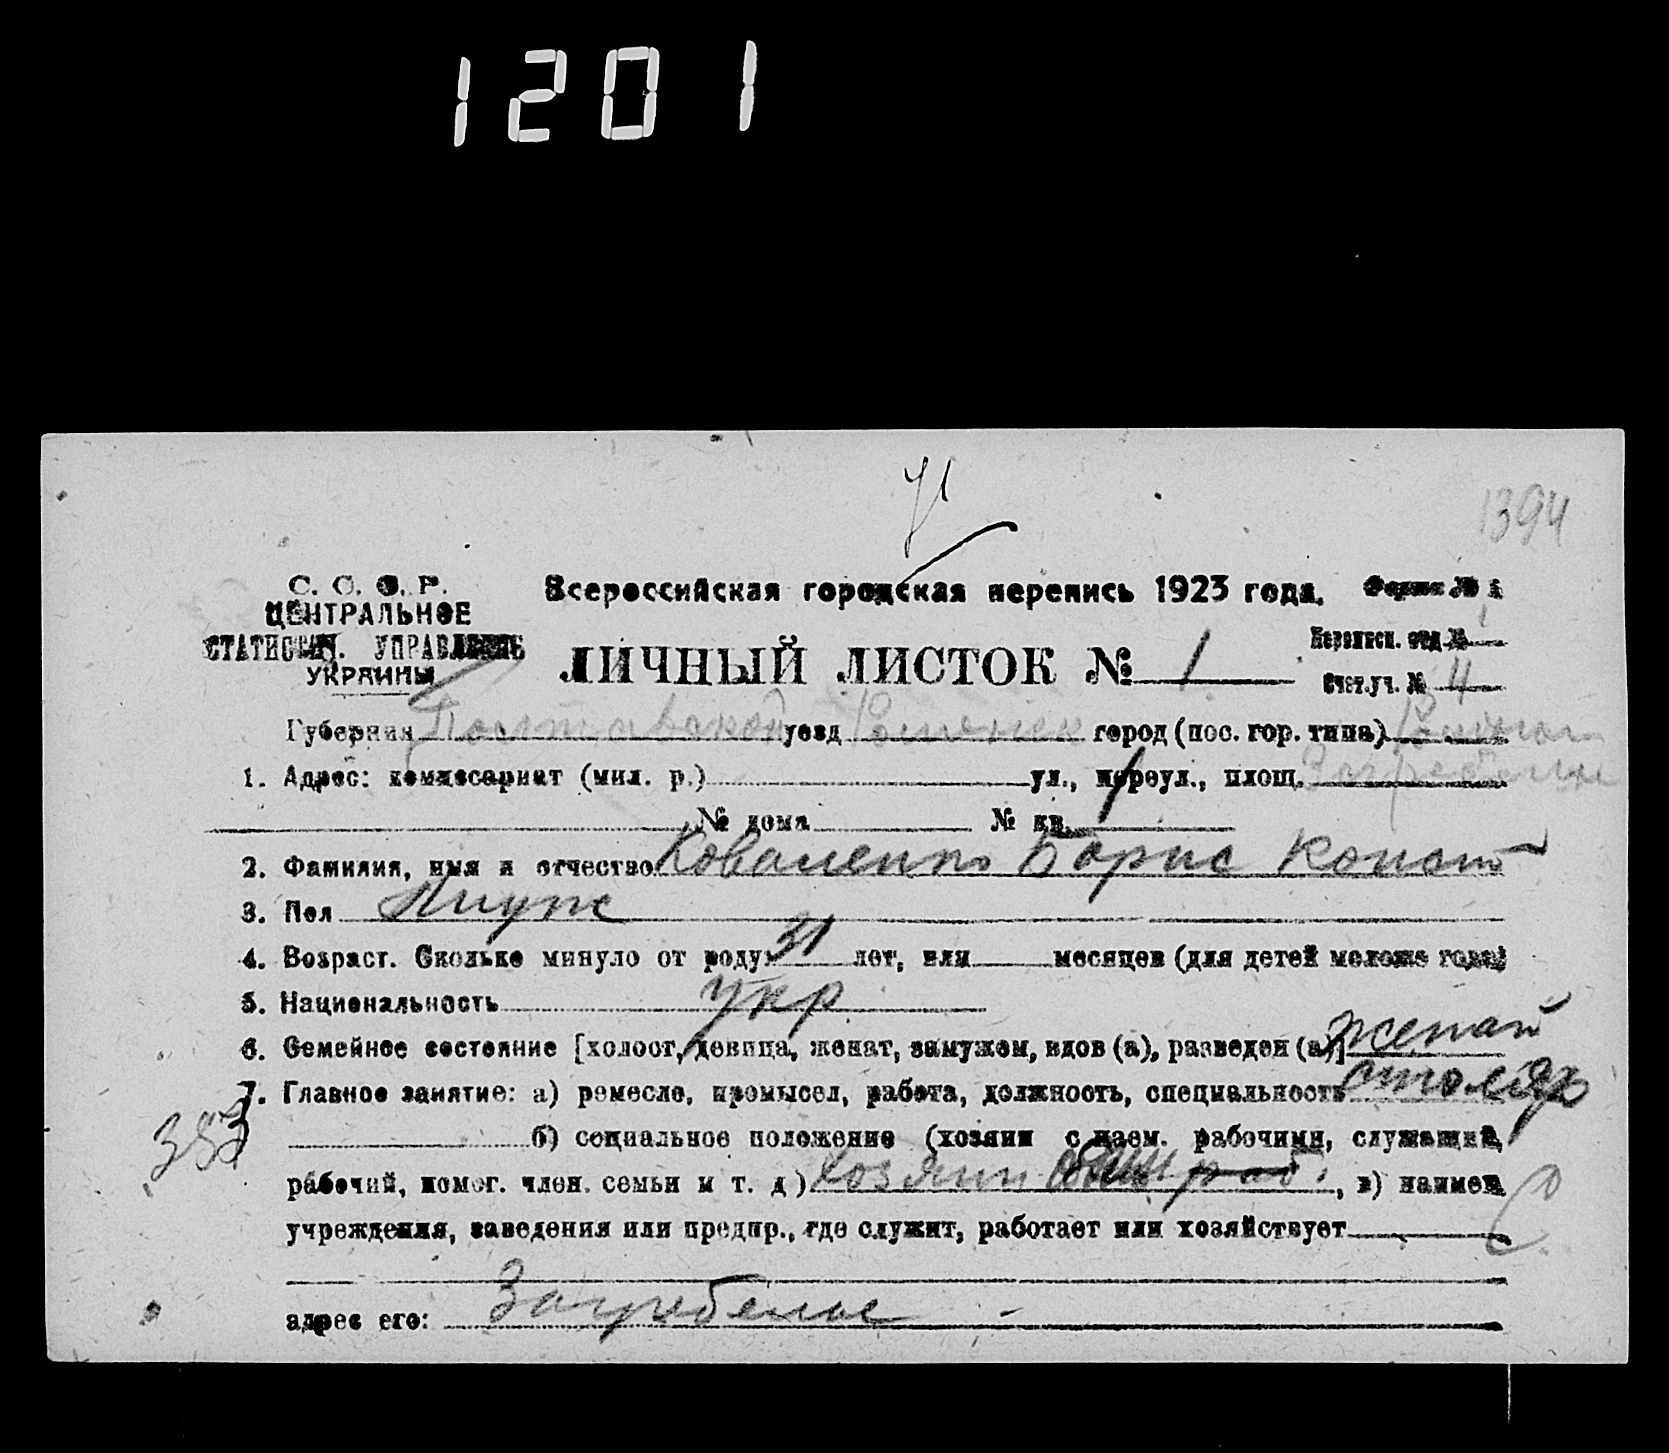 1201
1394
С. С. С. Р.
ЦЕНТРАЛЬНОЕ
СТАТИСТИЧ. УПРАВЛЕНИЕ
УКРАИНЫ
Всероссийская городская перепись 1923 года.
Форма № 1
ЛИЧНЫЙ ЛИСТОК № 1
Переписн. отд №
Счет.уч. № 4
Губерния Полтавской уезд Роменск город (пос. гор. типа)
1. Адрес: комиссариат (мил. р.) ул., переул., площ. Загребелье
№ дома № кв.
2. Фамилия, имя и отчество Коваленко Борис Конст
3. Пол Мужс
4. Возраст. Сколько минуло от роду: 31 лет, или месяцев (для детей моложе года)
5. Национальность Укр
6. Семейное состояние [холост, девица, женат, замужем, вдов (а), разведен (а)] женат
7. Главное занятие: а) ремесло, промысел, работа, должность, специальность столяр
383
б) социальное положение (хозяин с наем. рабочими, служащий,
рабочий, помог. член. семьи и т. д) хозяин раб. , в) наимен.
учреждения, заведения или предпр., где служит, работает или хозяйствует
адрес его: Загребелье